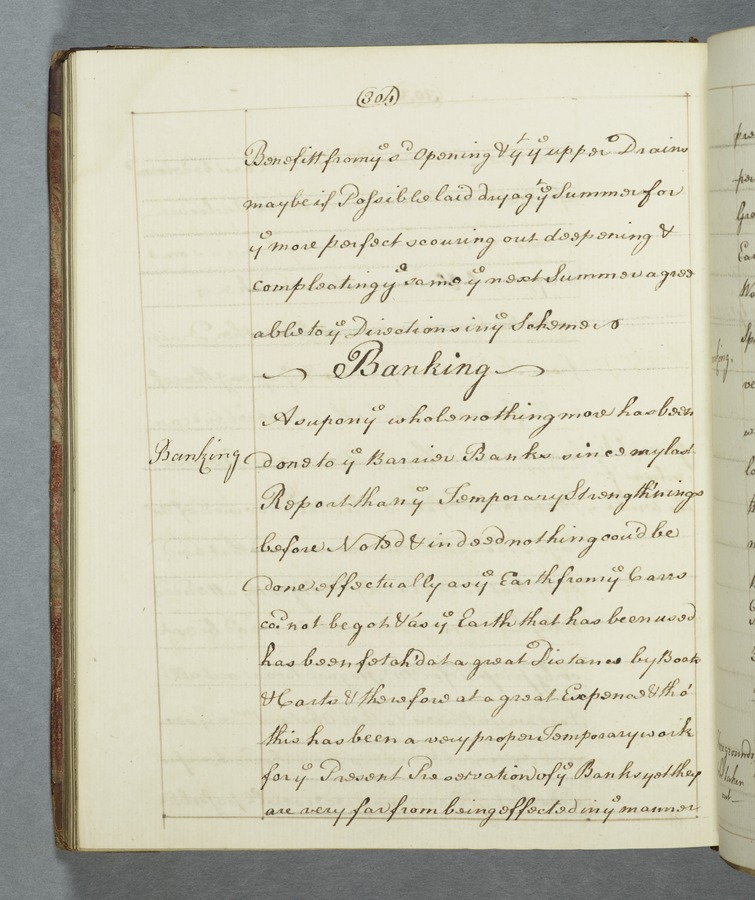 (304)
Benefitt from yᵉ sᵈ Opening & yᵗ yᵉ upper Drains
may be if Possible laid dry agᵗ yᵉ Summer for
yᵉ more perfect scouring out deepening &
compleating yᵉ same yᵉ next Summer agree
able to yᵉ Directions in yᵉ Scheme
Banking
As upon yᵉ whole nothing more has been
Banking
done to yᵉ Barrier Banks since my last
Report than yᵉ Temporary Strength'nings
before Noted & indeed nothing cou'd be
done effectually as yᵉ Earth from yᵉ Carrs
coᵈ not be got & as yᵉ Earth that has been used
has been fetch'd at a great Distance by Boats
& Carts & therefore at a great Expence & tho'
this has been a very proper Temporary work
for yᵉ Present Preservation of yᵉ Banks yet they
are very far from being effected in yᵉ manner